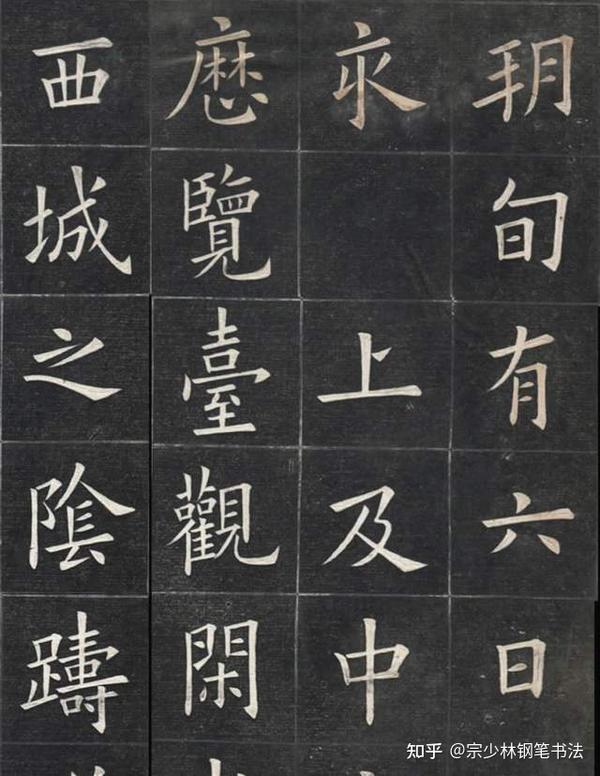 朔旬有六日
亥 上及中
歷覽臺觀閑
西城之陰躊
知乎 @宗少林钢笔书法